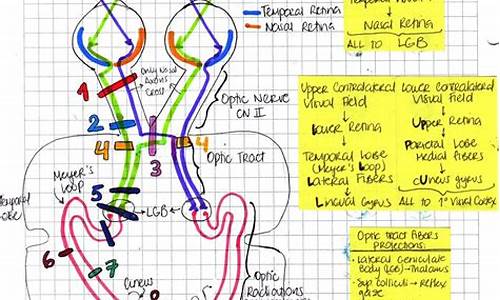 Temporal Retina
Nasal Retina
Nasal Retina
ALL TO LGB
1
Only Nasal
Cross
Optic Nerve
CN II
2
4
3
4
Optic Tract
Meyer's
Loop
Lobe
5
LGB
6
7
Cuneus
8
Optic
Radiations
Upper Contralateral
Visual Field
Lower Retina
Temporal Lobe
(Meyer's Loop)
Lateral Fibers
Lingual Gyrus
Lower Contralateral
Visual Field
Upper Retina
Parietal Lobe
Medial Fibers
cUneus gyrus
ALL TO 1° Visual Cortex
Optic Tract Fibers
Projections:
• Lateral Geniculate
Body (LGB) → Thalamus
• Sup Colliculi → Reflex
gaze